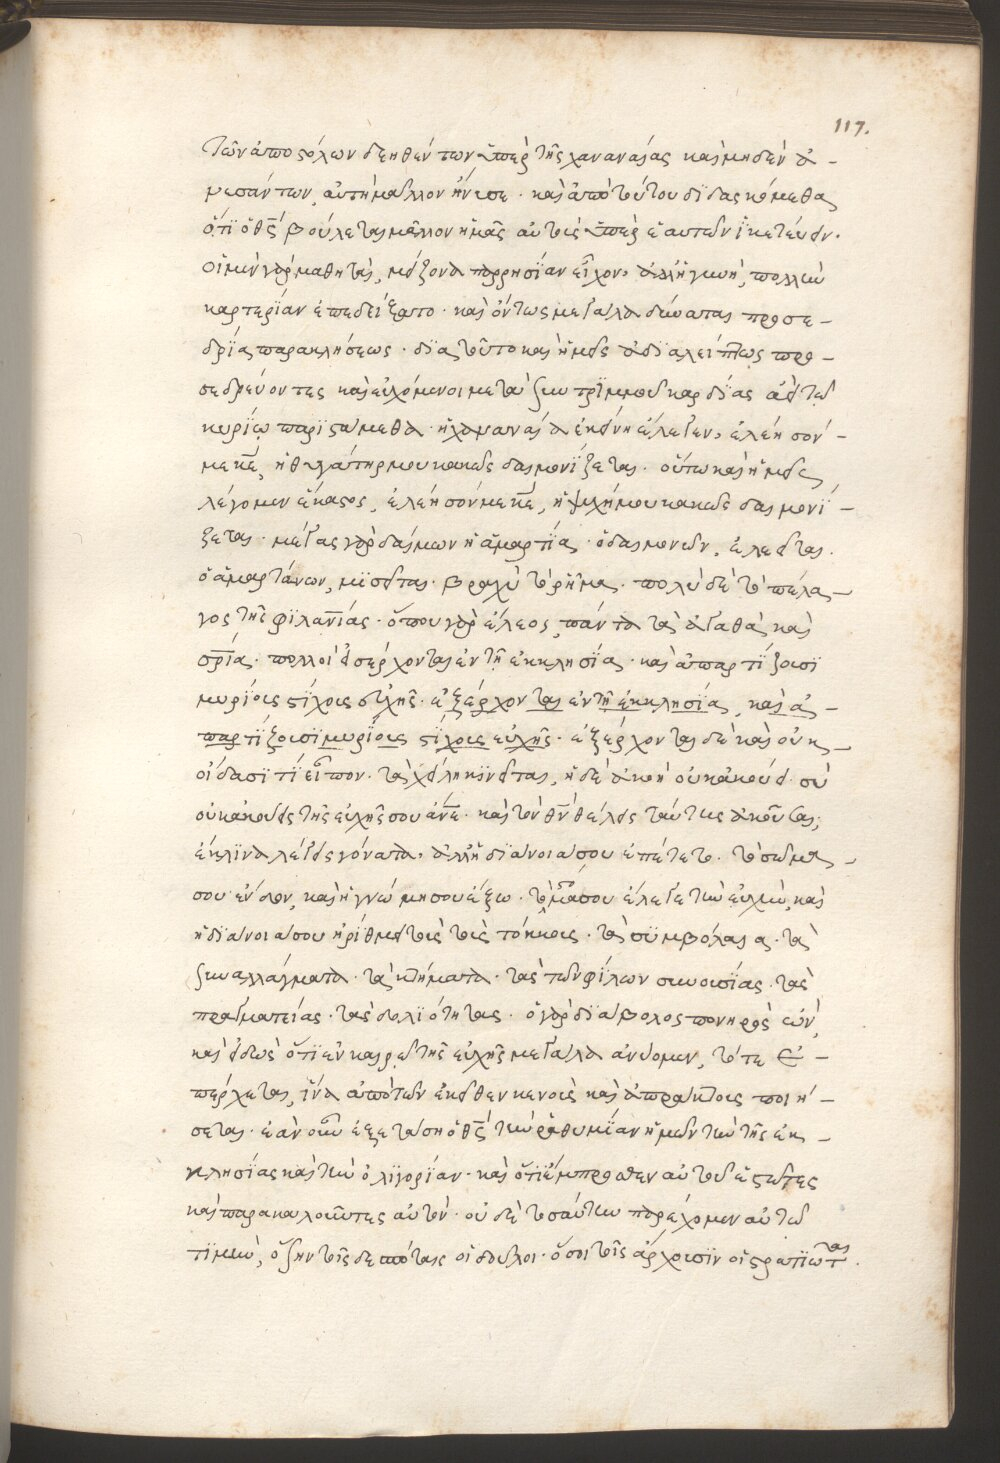 117.
τῶν ἀποστόλων δεηθέντων ὑπὲρ τῆς χαναναίας καὶ μηδὲν ἀ-
νυσάντων, αὐτὴ μᾶλλον ἤνυσε· καὶ ἀπὸ τούτου διδασκόμεθα
ὅτι ὁ θς̅ βούλεται μᾶλλον ἡμᾶς αὐτοὺς ὑπὲρ ἑαυτῶν ἱκετεύειν·
οἱ μὲν γὰρ μαθηταὶ, μείζονα παρρησίαν εἶχον, ἀλλ' ἡ γυνὴ, πολλὴν
καρτερίαν ἐπεδείξατο· καὶ ὄντως μεγάλα δύναται προσε-
δρία παρακλήσεως· διὰ τοῦτο καὶ ἡμεῖς ἀδιαλείπτως προ-
σεδρεύοντες καὶ εὐχόμενοι μετὰ συντριμμοῦ καρδίας ἀεὶ τῷ
κυρίῳ παριστάμεθα· ἡ χαναναία ἐκείνη ἔλεγεν, ἐλέησόν-
με κε̅, ἡ θυγάτηρ μου κακῶς δαιμονίζεται· οὕτω καὶ ἡμεῖς
λέγομεν ἕκαστος, ἐλέησόν με κε̅, ἡ ψυχή μου κακῶς δαιμονί-
ζεται· μέγας γὰρ δαίμων ἡ ἁμαρτία· ὁ δαιμονῶν, ἐλεεῖται·
ὁ ἁμαρτάνων, μισεῖται· βραχὺ τὸ ῥῆμα· πολὺ δὲ τὸ πέλα-
γος τῆς φιλανίας· ὅπου γὰρ ἔλεος, πάντα τὰ ἀγαθὰ καὶ
σρία· πολλοὶ εἰσέρχονται ἐν τῇ ἐκκλησίᾳ· καὶ ἀπαρτίζουσι
μυρίους στίχους εὐχῆς· ἐξέρχονται ἐν τῇ ἐκκλησίᾳ, καὶ ἀ-
παρτίζουσι μυρίους στίχους εὐχῆς· ἐξέρχονται δὲ καὶ οὐκ-
οἴδασι τί εἶπον· τὰ χείλη κινεῖται, ἡ δὲ ἀκοὴ οὐκ ἀκούει· σὺ
οὐκ ἀκούεις τῆς εὐχῆς σου ἄνε̅· καὶ τὸν θν̅ θέλεις ταύτης ἀκοῦσαι;
ἔκλινα λέγεις γόνατα, ἀλλ' ἡ διάνοιά σου ἐπέτετο· τὸ σῶμα-
σου ἔνδον, καὶ ἡ γνώμη σου ἔξω· τὸ στόμα σου ἔλεγε τὴν εὐχὴν, καὶ
ἡ διάνοιά σου ἠρίθμει τοὺς τοὺς τόκους· τὰ συμβόλαια· τὰ
συναλλάγματα· τὰ κτήματα· τὰς τῶν φίλων συνουσίας· τὰς
πραγματείας· τὰς δολιότητας· ὁ γὰρ διάβολος πονηρὸς ὢν,
καὶ εἰδὼς ὅτι ἐν καιρῷ τῆς εὐχῆς μεγάλα ἀνύομεν, τότε ἐ-
πέρχεται, ἵνα ἀπὸ τῶν ἐκεῖθεν κενοὺς καὶ ἀπράκτους ποιή-
σεται· ἐὰν οὖν ἐξετάσῃ ὁ θς̅ τὴν ῥαθυμίαν ἡμῶν τὴν τῆς ἐκ-
κλησίας καὶ τὴν ὀλιγορίαν· καὶ ὅτι ἔμπροσθεν αὐτοῦ ἑστῶτες
καὶ παρακαλοῦντες αὐτὸν· οὐδὲ τοσαύτην παρέχομεν αὐτῷ
τιμὴν, ὅσην τοῖς δεσπόταις οἱ δοῦλοι· ὅσοι τοῖς ἄρχουσιν οἱ στρατιῶται·